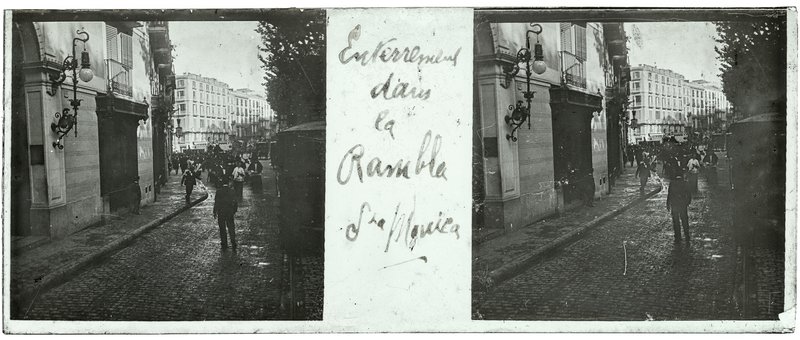 Enterrement
dans
la
Rambla
Sta Monica